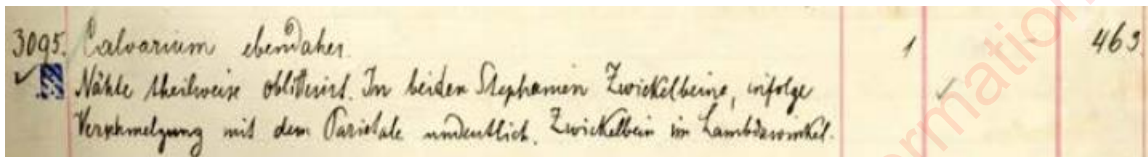 3095. Calvarium ebendaher. 1 463.
Nähte theilweise obliterirt. In beiden Stephanien Zwickelbeine, infolge
Verschmelzung mit dem Parietale undeutlich. Zwickelbein im Lambdawinkel.
ormation